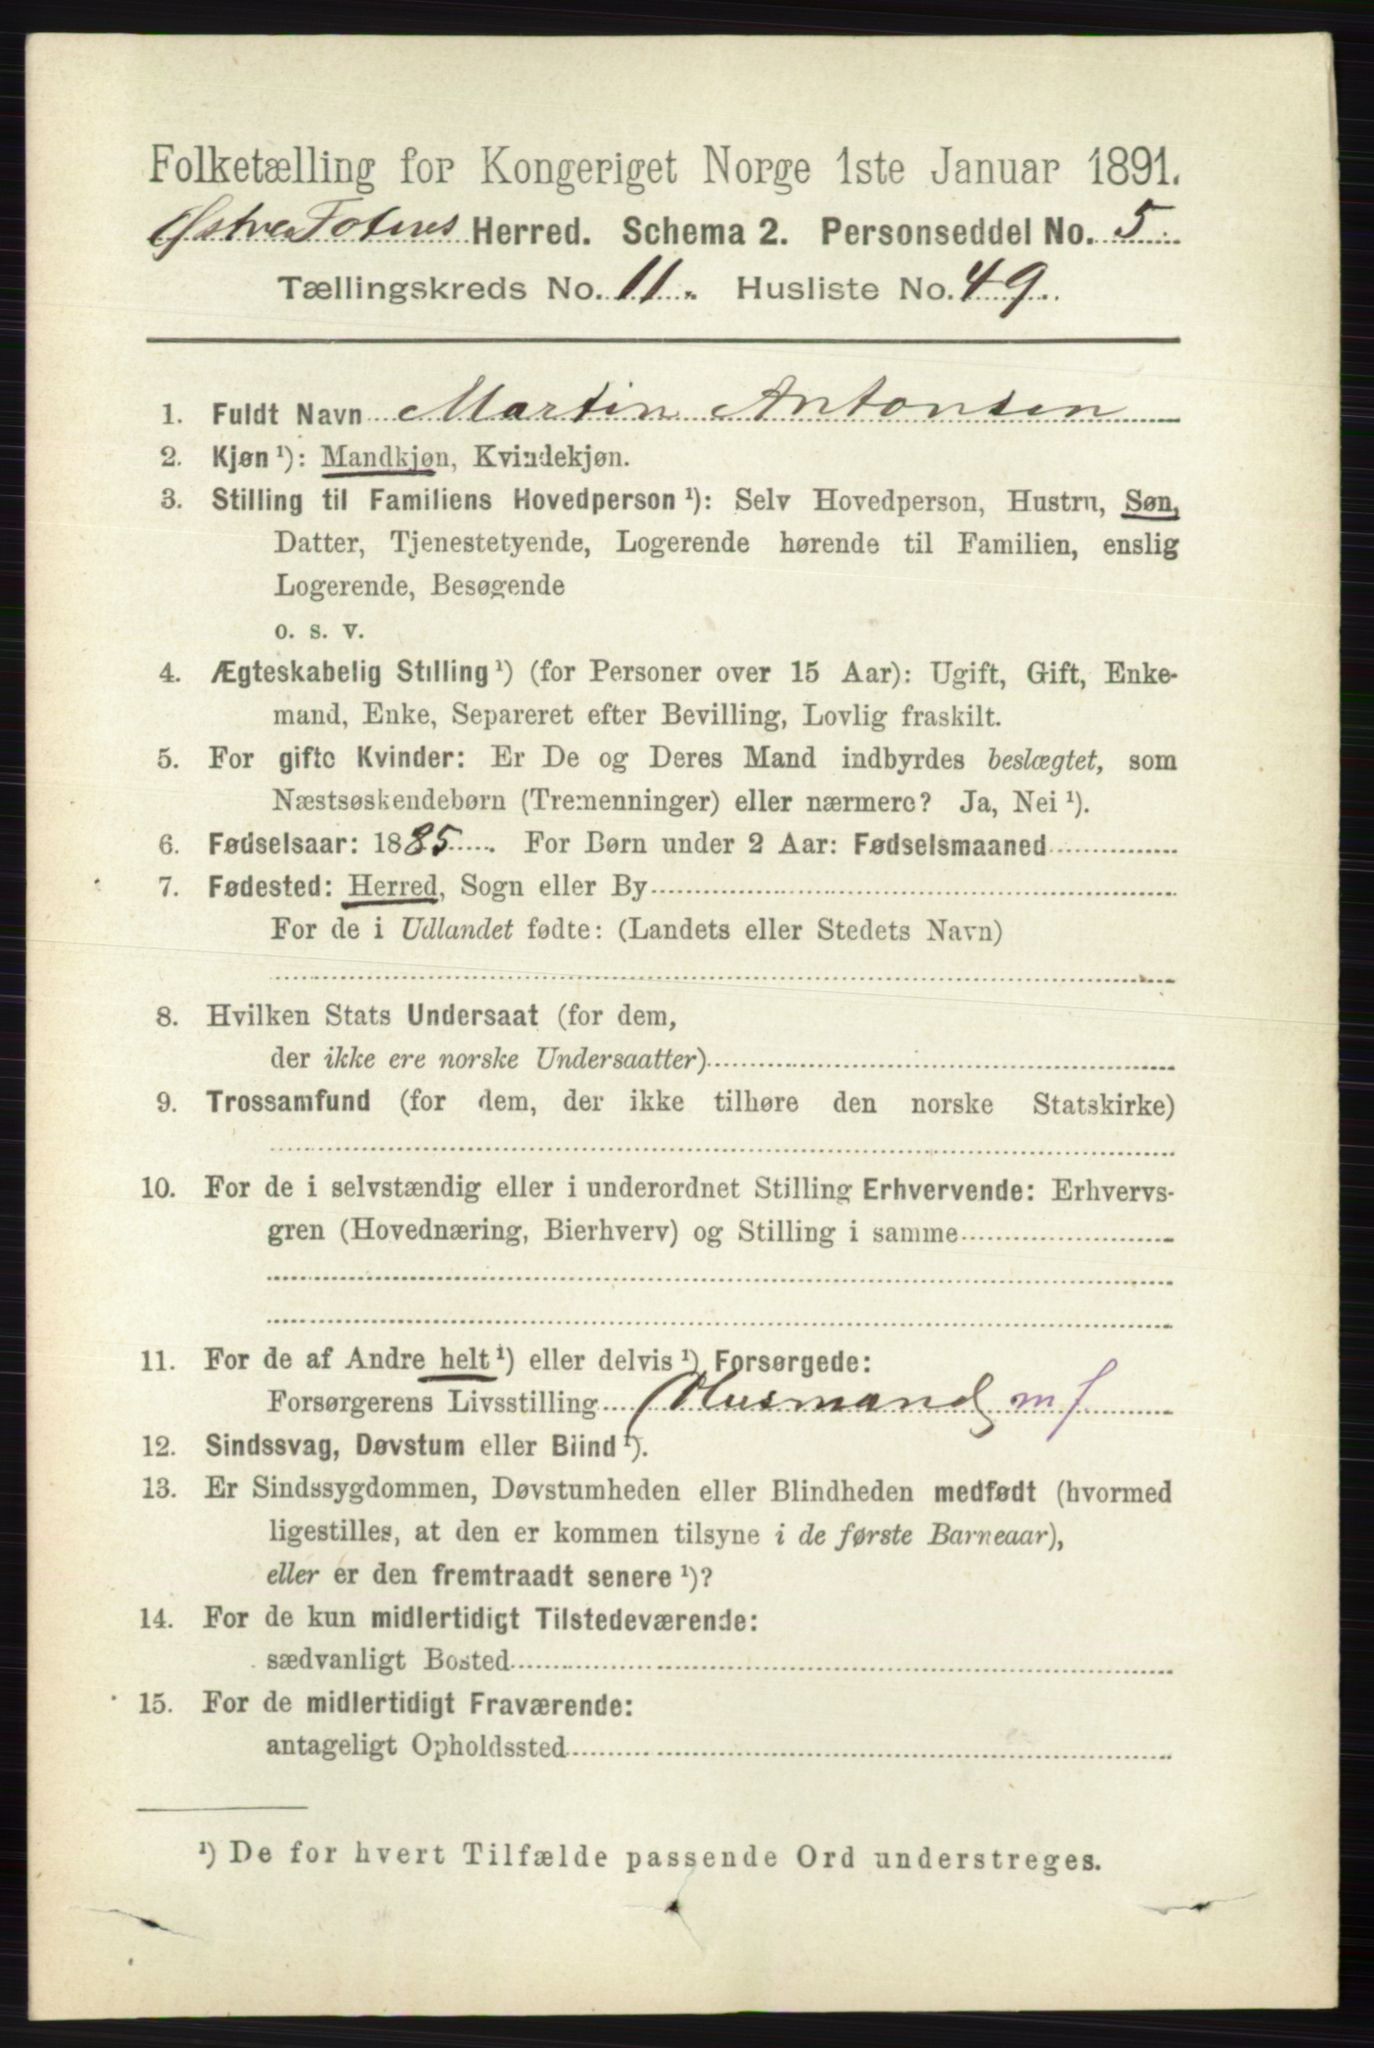 Folketælling for Kongeriget Norge 1ste Januar 1891.
Østre Totens Herred. Schema 2. Personseddel No. 5
Tællingskreds No. 11. Husliste No. 49.
1. Fuldt Navn Martin Antonsen
2. Kjøn ¹): Mandkjøn, Kvindekjøn.
3. Stilling til Familiens Hovedperson ¹): Selv Hovedperson, Hustru, Søn,
Datter, Tjenestetyende, Logerende hørende til Familien, enslig
Logerende, Besøgende
o. s. v.
4. Ægteskabelig Stilling ¹) (for Personer over 15 Aar): Ugift, Gift, Enke-
mand, Enke, Separeret efter Bevilling, Lovlig fraskilt.
5. For gifte Kvinder: Er De og Deres Mand indbyrdes beslægtet, som
Næstsøskendebørn (Tremenninger) eller nærmere? Ja, Nei ¹).
6. Fødselsaar: 1885. For Børn under 2 Aar: Fødselsmaaned
7. Fødested: Herred, Sogn eller By
For de i Udlandet fødte: (Landets eller Stedets Navn)
8. Hvilken Stats Undersaat (for dem,
der ikke ere norske Undersaatter)
9. Trossamfund (for dem, der ikke tilhøre den norske Statskirke)
10. For de i selvstændig eller i underordnet Stilling Erhvervende: Erhvervs-
gren (Hovednæring, Bierhverv) og Stilling i samme
11. For de af Andre helt ¹) eller delvis ¹) Forsørgede:
Forsørgerens Livsstilling Husmand m f
12. Sindssvag, Døvstum eller Blind ¹).
13. Er Sindssygdommen, Døvstumheden eller Blindheden medfødt (hvormed
ligestilles, at den er kommen tilsyne i de første Barneaar),
eller er den fremtraadt senere ¹)?
14. For de kun midlertidigt Tilstedeværende:
sædvanligt Bosted
15. For de midlertidigt Fraværende:
antageligt Opholdssted
¹) De for hvert Tilfælde passende Ord understreges.